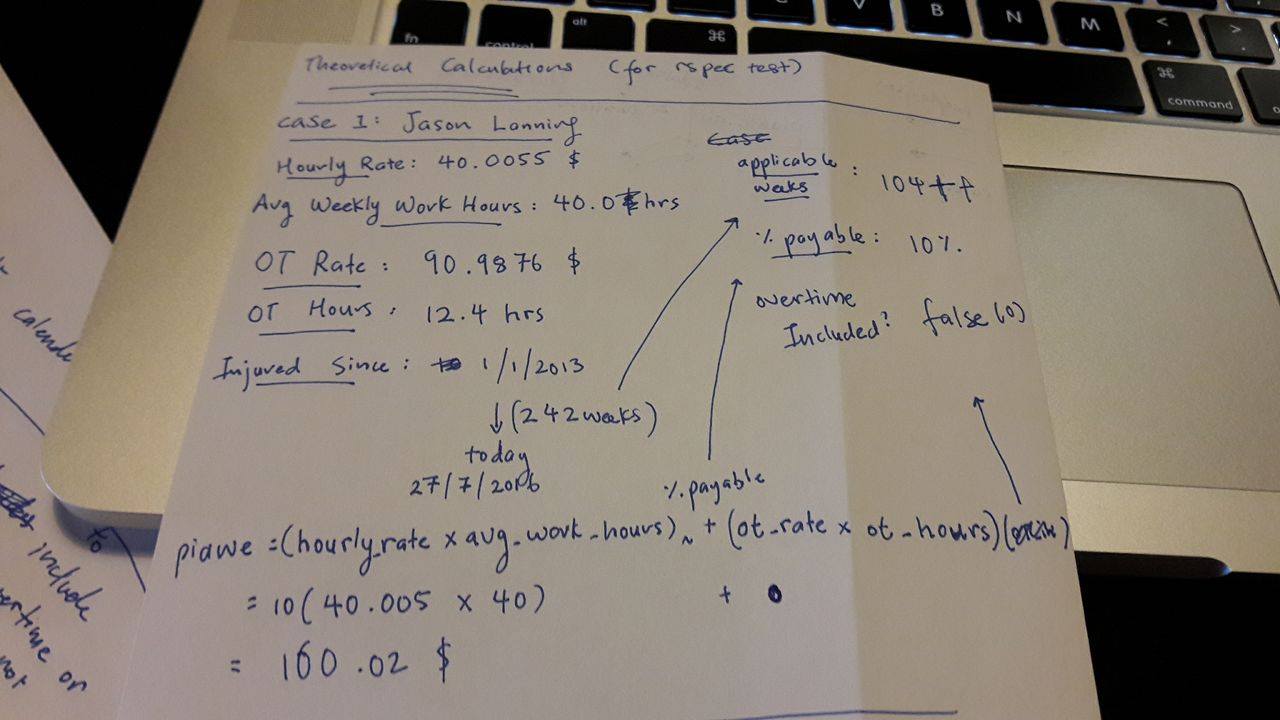 fn
control
alt
⌘
V
B
N
M
<
,
>
.
⌘
command
Theoretical Calculations (for rspec test)
case 1: Jason Lanning
Hourly Rate: 40.0055 $
Avg Weekly Work Hours: 40.0 hrs
OT Rate: 90.9876 $
OT Hours: 12.4 hrs
Injured Since: 1/1/2013
↓ (242 weeks)
today
27/7/2016
Case
applicable
weeks : 104
% payable: 10%.
overtime
Included? false (0)
% payable
piawe = (hourly_rate x avg_work_hours) + (ot_rate x ot_hours)
= 10(40.005 x 40) + 0
= 160.02 $
calende
to
include
overtime or
not